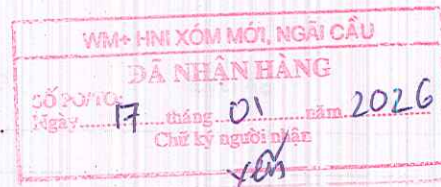 WM+ HNI XÓM MỚI, NGÃI CẦU
ĐÃ NHẬN HÀNG
SỐ PO/TO:
Ngày 17 tháng 01 năm 2026
Chữ ký người nhận
Yến